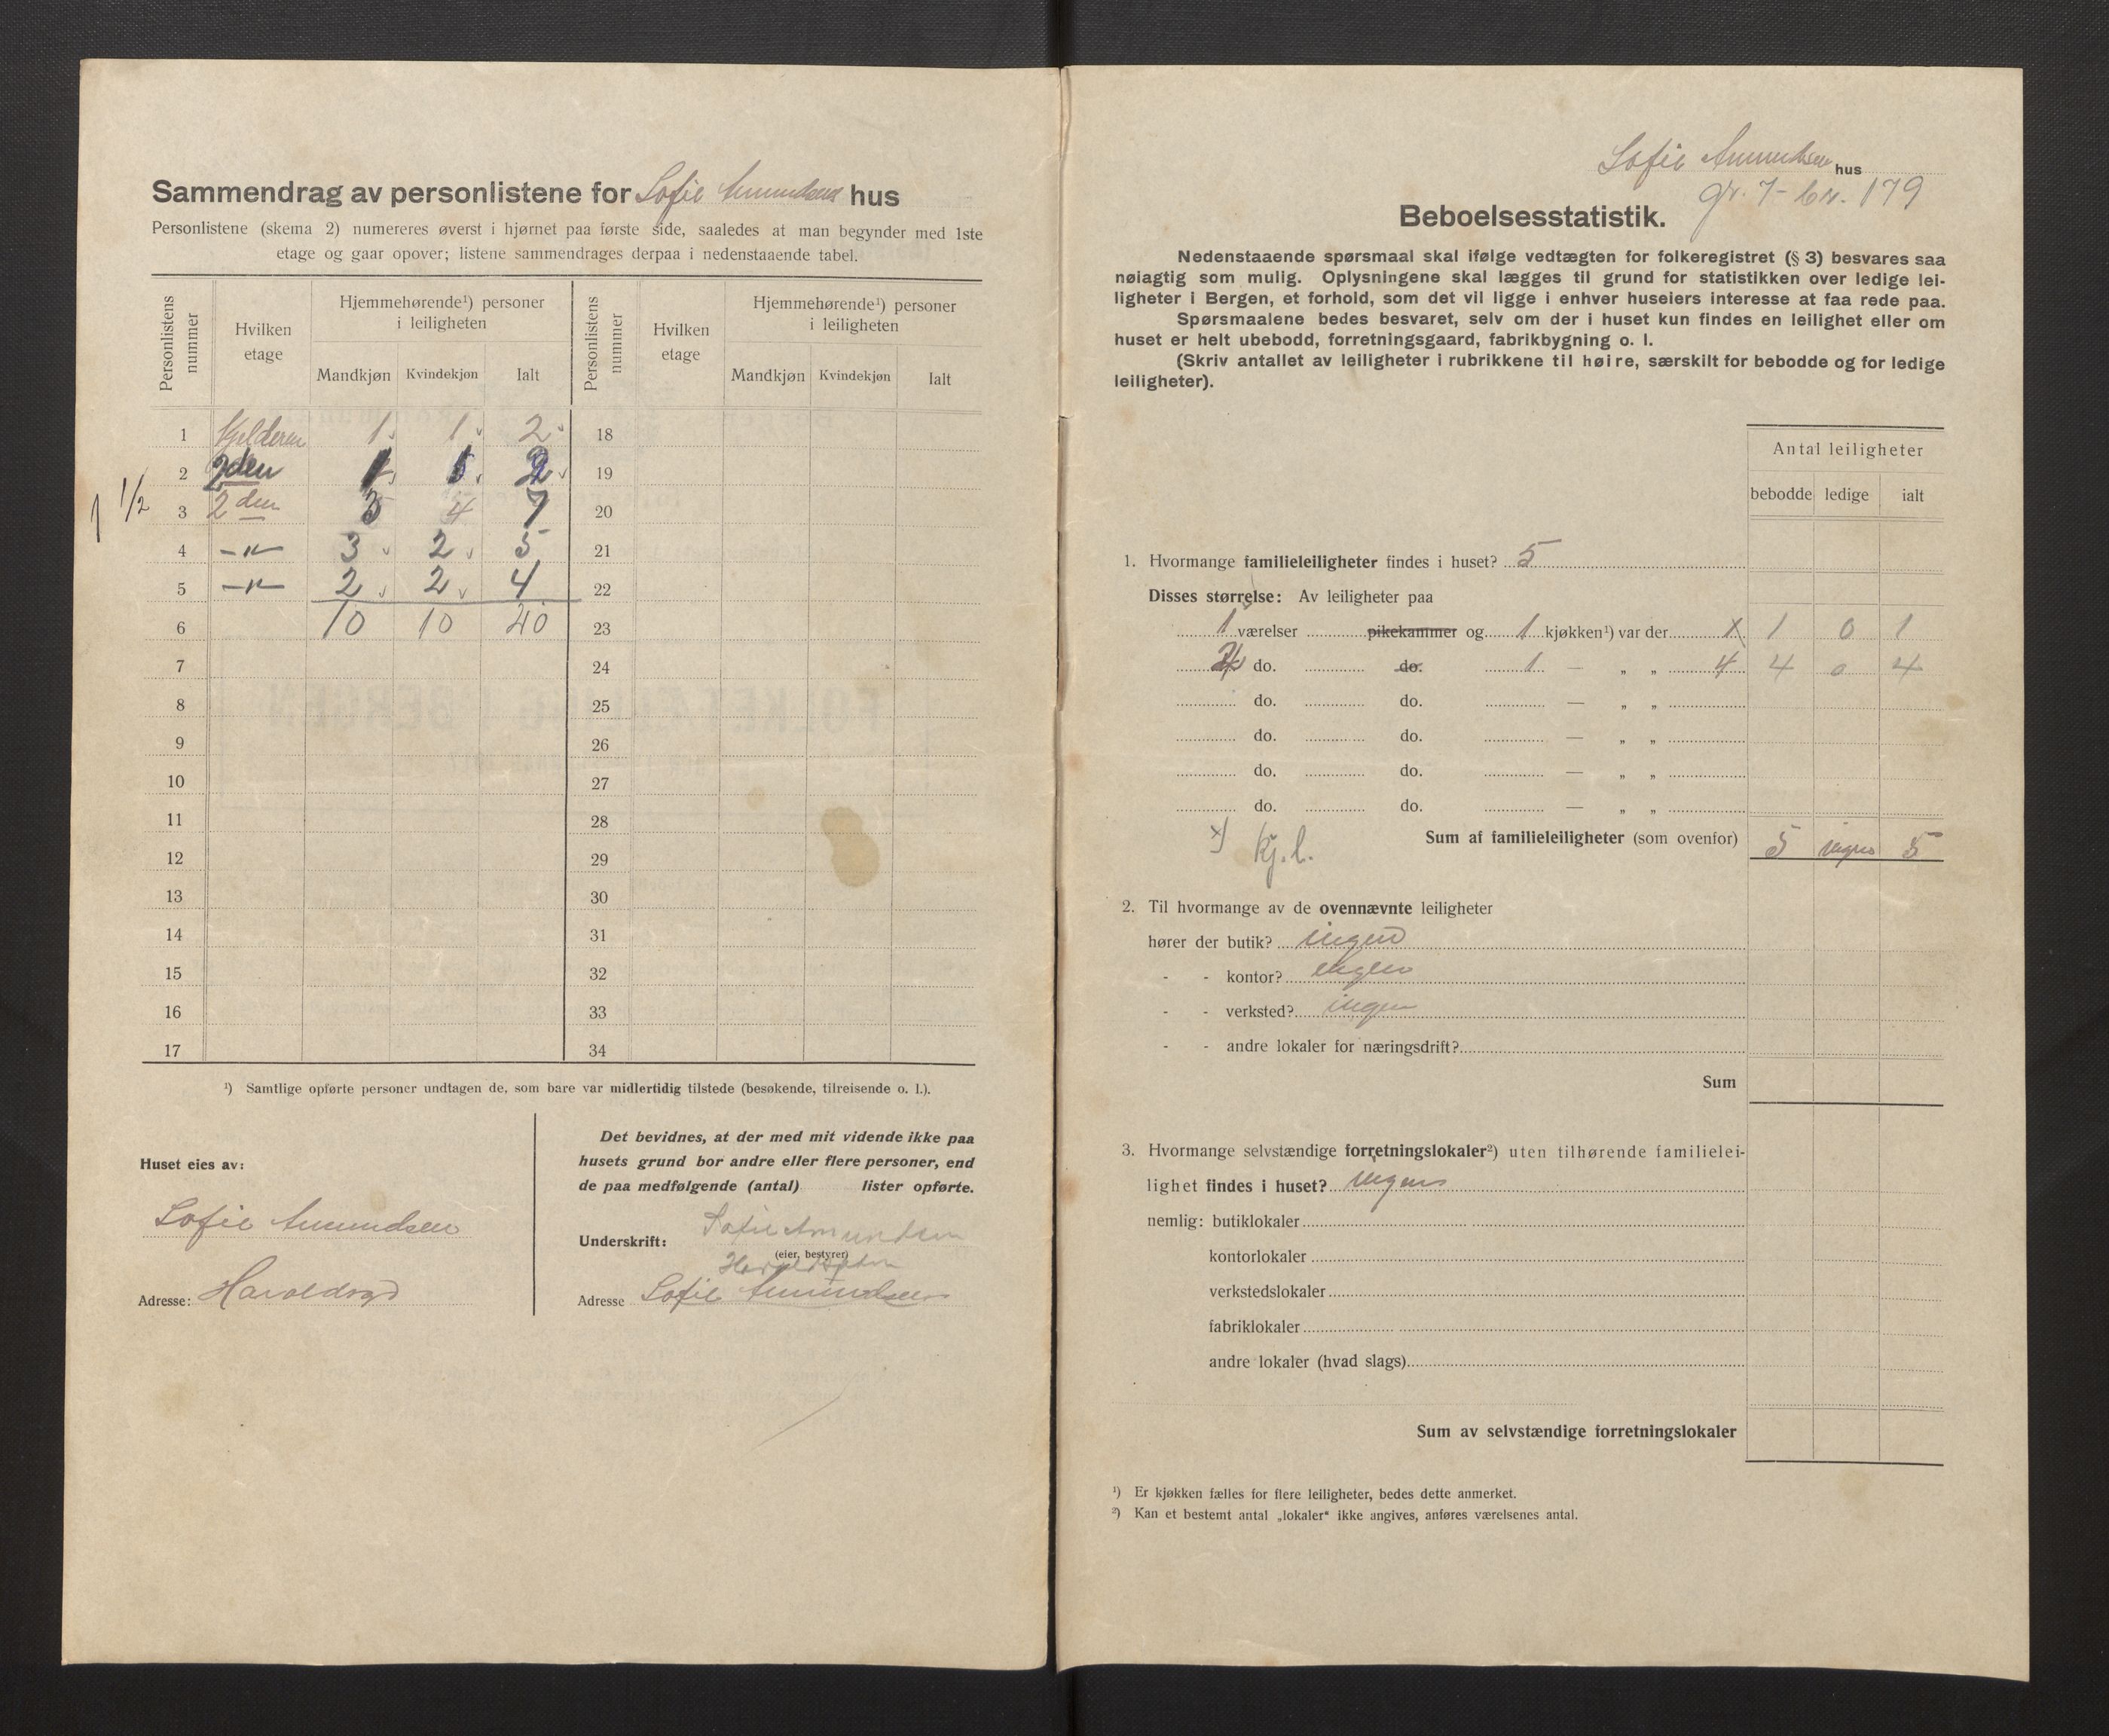 Sammendrag av personlistene for Sofie Amundsens hus
Personlistene (skema 2) numereres øverst i hjørnet paa første side, saaledes at man begynder med 1ste
etage og gaar opover; listene sammendrages derpaa i nedenstaaende tabel.
Personlistens nummer
Hvilken etage
Hjemmehørende¹) personer i leiligheten
Mandkjøn Kvindekjøn Ialt
Personlistens nummer
Hvilken etage
Hjemmehørende¹) personer i leiligheten
Mandkjøn Kvindekjøn Ialt
1 Kjelderen 1 1 2 18
2 2den 1 1 2 19
1 1/2
3 2den 3 4 7 20
4 -"- 3 2 5 21
5 -"- 2 2 4 22
6 10 10 20 23
7 24
8 25
9 26
10 27
11 28
12 29
13 30
14 31
15 32
16 33
17 34
¹) Samtlige opførte personer undtagen de, som bare var midlertidig tilstede (besøkende, tilreisende o. l.).
Huset eies av:
Sofie Amundsen
Adresse: Haraldsgd
Det bevidnes, at der med mit vidende ikke paa
husets grund bor andre eller flere personer, end
de paa medfølgende (antal) lister opførte.
Underskrift: Sofie Amundsen
(eier, bestyrer)
Adresse Sofie Amundsen
Sofie Amundsen hus
gr. 7 - br. 179
Beboelsesstatistik.
Nedenstaaende spørsmaal skal ifølge vedtægten for folkeregistret (§ 3) besvares saa
nøiagtig som mulig. Oplysningene skal lægges til grund for statistikken over ledige lei-
ligheter i Bergen, et forhold, som det vil ligge i enhver huseiers interesse at faa rede paa.
Spørsmaalene bedes besvaret, selv om der i huset kun findes en leilighet eller om
huset er helt ubebodd, forretningsgaard, fabrikbygning o. l.
(Skriv antallet av leiligheter i rubrikkene til høire, særskilt for bebodde og for ledige
leiligheter).
Antal leiligheter
bebodde ledige ialt
1. Hvormange familieleiligheter findes i huset? 5
Disses størrelse: Av leiligheter paa
1 værelser pikekammer og 1 kjøkken¹) var der 1 1 0 1
2 do. do. 1 — „ „ 4 4 0 4
do. do. — „ „
do. do. — „ „
do. do. — „ „
do. do. — „ „
x) Kj. l.
Sum af familieleiligheter (som ovenfor) 5 ingen 5
2. Til hvormange av de ovennævnte leiligheter
hører der butik? ingen
- - kontor? ingen
- - verksted? ingen
- - andre lokaler for næringsdrift?
Sum
3. Hvormange selvstændige forretningslokaler²) uten tilhørende familielei-
lighet findes i huset? ingen
nemlig: butiklokaler
kontorlokaler
verkstedslokaler
fabriklokaler
andre lokaler (hvad slags)
Sum av selvstændige forretningslokaler
¹) Er kjøkken fælles for flere leiligheter, bedes dette anmerket.
²) Kan et bestemt antal „lokaler" ikke angives, anføres værelsenes antal.